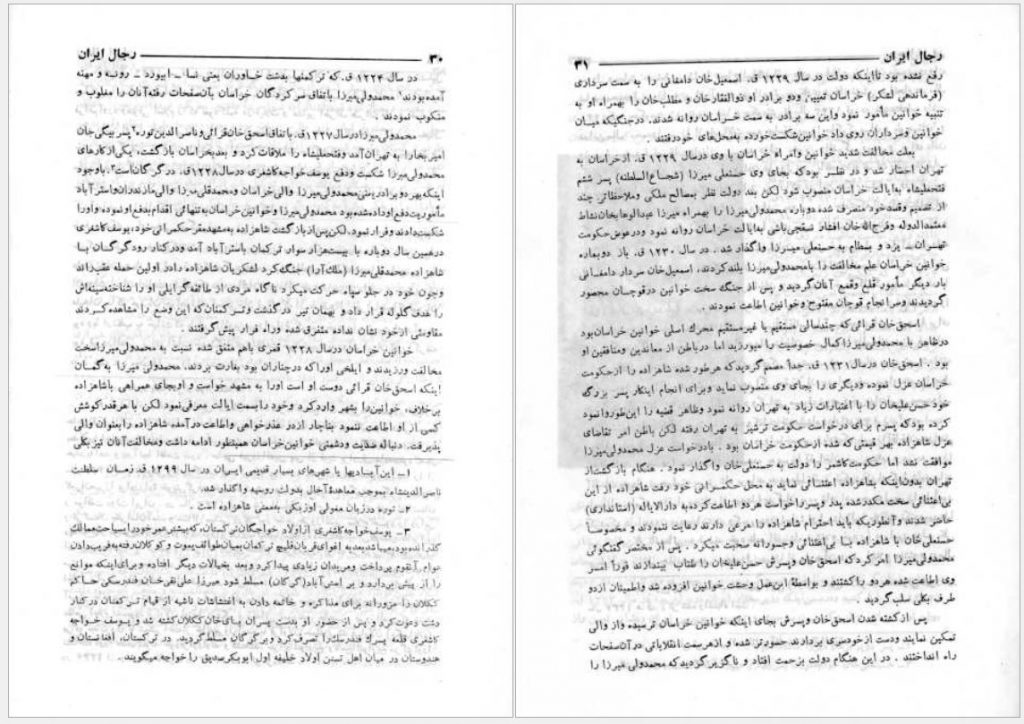 رجال ایران ۳۰
در سال ۱۲۲۴ ق. که ترکمنها بدشت خاوران یعنی نسا ـ ابیورد ـ رونه و مهنه
آمده بودند¹ محمدولی میرزا باتفاق سرکردگان خراسان بآن صفحات رفته آنان را مغلوب و
منکوب نمودند
محمدولی میرزا در سال ۱۲۲۷ ق. باتفاق اسحق خان قرائی و ناصرالدین توره² پسر بیگی جان
امیر بخارا به تهران آمد و فتحعلیشاه را ملاقات کرد و بعد بخراسان بازگشت، یکی از کارهای
محمدولی میرزا شکست و دفع یوسف خواجه کاشغری در سال ۱۲۲۸ ق. در گرگان است³. با وجود
اینکه بهر دو برادر یعنی محمدولی میرزا والی خراسان و محمدقلی میرزا والی مازندران و استرآباد
مأموریت دفع او داده شده بود محمدولی میرزا و خوانین خراسان به تنهائی اقدام بدفع او نموده و او را
شکست دادند و فرار نمود، لکن پس از بازگشت شاهزاده به مشهد مقر حکمرانی خود، یوسف کاشغری
در همین سال دوباره با بیست هزار سوار ترکمان باسترآباد آمد و در کنار رود گرگان با
شاهزاده محمدقلی میرزا (ملک آرا) جنگ کرد لشکریان شاهزاده در اولین حمله عقب زاند
و چون خود در جلو سپاه حرکت میکرد ناگاه مردی از طائفه گرایلی او را شناخته سینه‌اش
را هدف گلوله قرار داد و بهمان تیر در گذشت و ترکمنان که این وضع را مشاهده کردند
مقاومتی از خود نشان نداده متفرق شده و راه فرار پیش گرفتند .
خوانین خراسان در سال ۱۲۲۸ قمری باهم متفق شده نسبت به محمدولی میرزا سخت
مخالفت ورزیدند و ایلخی او را که در چناران بود بغارت بردند. محمدولی میرزا به گمان
اینکه اسحق خان قرائی دوست او است او را به مشهد خواست و او بجای همراهی با شاهزاده
بر خلاف، خوانین را بشهر وارد کرد و خود را بسمت ایالت معرفی نمود لکن با هر قدر کوشش
کسی از او اطاعت ننمود بناچار از در عذرخواهی و اطاعت در آمده شاهزاده را بعنوان والی
پذیرفت. دنباله ضدیت و دشمنی خوانین خراسان همینطور ادامه داشت و مخالفت آنان نیز بکلی
۱ـ این آبادیها یا شهرهای بسیار قدیمی ایران در سال ۱۲۹۹ ق. زمان سلطنت
ناصرالدینشاه بموجب معاهدهٔ آخال بدولت روسیه واگذار شد.
۲ـ توره در زبان مغولی اوزبکی به معنی شاهزاده است .
۳ـ یوسف خواجه کاشغری از اولاد خواجگان ترکستان، که بیشتر عمر خود را بسیاحت ممالک
گذرانده بود میباشد بعد به اغوای قربان قلیچ ترکمان بمیان طوائف یموت و کوکلان رفته به فریب دادن
عوام آنقوم پرداخت و مریدان زیادی پیدا کرد و بعد بخیالات دیگر افتاده و برای اینکه موانع
را از پیش بردارد و بر استی آباد (گرگان) مسلط شود میرزا علی نقی خان فندرسکی حاکم
ککلان را مزورانه برای مذاکره و خاتمه دادن به اغتشاشات ناشیه از قیام ترکمنان در کنار
دشت دعوت کرد و پس از حضور او بدست پسران بای خان ککلان کشته شد و یوسف خواجه
کاشغری قلعه پسرک فندرسک را تصرف کرد و بر گرگان مسلط گردید. در ترکستان، افغانستان و
هندوستان در میان اهل تسنن اولاد خلیفه اول ابوبکر صدیق را خواجه میگویند.
رجال ایران ۳۱
رفع نشده بود تا اینکه دولت در سال ۱۲۲۹ ق. اسمعیل خان دامغانی را به سمت سرداری
(فرماندهی لشکر) خراسان تعیین و دو برادر او ذوالفقارخان و مطلب خان را بهمراه او به
تنبیه خوانین مأمور نمود و این سه برادر به سمت خراسان روانه شدند. در جنگیکه میان
خوانین و سرداران روی داد خوانین شکست خورده به محل‌های خود رفتند .
بعلت مخالفت شدید خوانین و امراء خراسان با وی در سال ۱۲۲۹ ق. از خراسان به
تهران احضار شد و در نظر بود که بجای وی حسنعلی میرزا (شجاع السلطنه) پسر ششم
فتحعلیشاه به ایالت خراسان منصوب شود لکن بعد دولت نظر بمصالح ملکی و ملاحظاتی چند
از تصمیم و قصد خود منصرف شده دوباره محمدولی میرزا را بهمراه میرزا عبدالوهابخان نشاط
معتمدالدوله و فرج الله خان افشار نسقچی باشی به ایالت خراسان روانه نمود و در عوض حکومت
تهران ـ یزد و بسطام به حسنعلی میرزا واگذار شد . در سال ۱۲۳۰ ق. باز دوباره
خوانین خراسان علم مخالفت را با محمدولی میرزا بلند کردند، اسمعیل خان سردار دامغانی
بار دیگر مأمور قلع وقمع آنان گردید و پس از جنگ سخت خوانین در قوچان محصور
گردیدند و سرانجام قوچان مفتوح و خوانین اطاعت نمودند .
اسحق خان قرائی که چند سالی مستقیم یا غیر مستقیم محرک اصلی خوانین خراسان بود
در ظاهر با محمدولی میرزا کمال خصوصیت را میورزید اما در باطن از معاندین و منافقین او
بود . اسحق خان در سال ۱۲۳۱ ق. جداً مصمم گردید که هر طور شده شاهزاده را از حکومت
خراسان عزل نموده و دیگری را بجای وی منصوب نماید و برای انجام اینکار پسر بزرگ
خود حسن علیخان را با اعتبارات زیاد به تهران روانه نمود و ظاهر قضیه را این طور وانمود
کرده بود که پسرم برای درخواست حکومت ترشیز به تهران رفته لکن باطن امر تقاضای
عزل شاهزاده بهر قیمتی که شده از حکومت خراسان بود . با درخواست عزل محمدولی میرزا
موافقت نشد اما حکومت کاشمر را دولت به حسنعلی خان واگذار نمود . هنگام بازگشت از
تهران بدون اینکه بشاهزاده اعتنائی نماید به محل حکمرانی خود رفت شاهزاده از این
بی‌اعتنائی سخت مکدر شده پدر و پسر را خواست هر دو اطاعت کرده به دارالایاله (استانداری)
حاضر شدند و آنطوریکه باید احترام شاهزاده را مرعی دارند رعایت ننمودند و مخصوصاً
حسنعلی خان با شاهزاده با بی‌اعتنائی و جسورانه صحبت میکرد . پس از مختصر گفتگوئی
محمدولی میرزا امر کرد که اسحق خان و پسرش حسن علیخان را طناب بیندازند فوراً امر
وی اطاعت شده هر دو را کشتند و بواسطهٔ این عمل وحشت خوانین افزوده شد و اطمینان از دو
طرف بکلی سلب گردید
پس از کشته شدن اسحق خان و پسرش بجای اینکه خوانین خراسان ترسیده و از والی
تمکین نمایند و دست از خودسری بردارند جسورتر شده و از هر سمت انقلاباتی در آن صفحات
راه انداختند . در این هنگام دولت بزحمت افتاد و ناگزیر گردید که محمدولی میرزا را